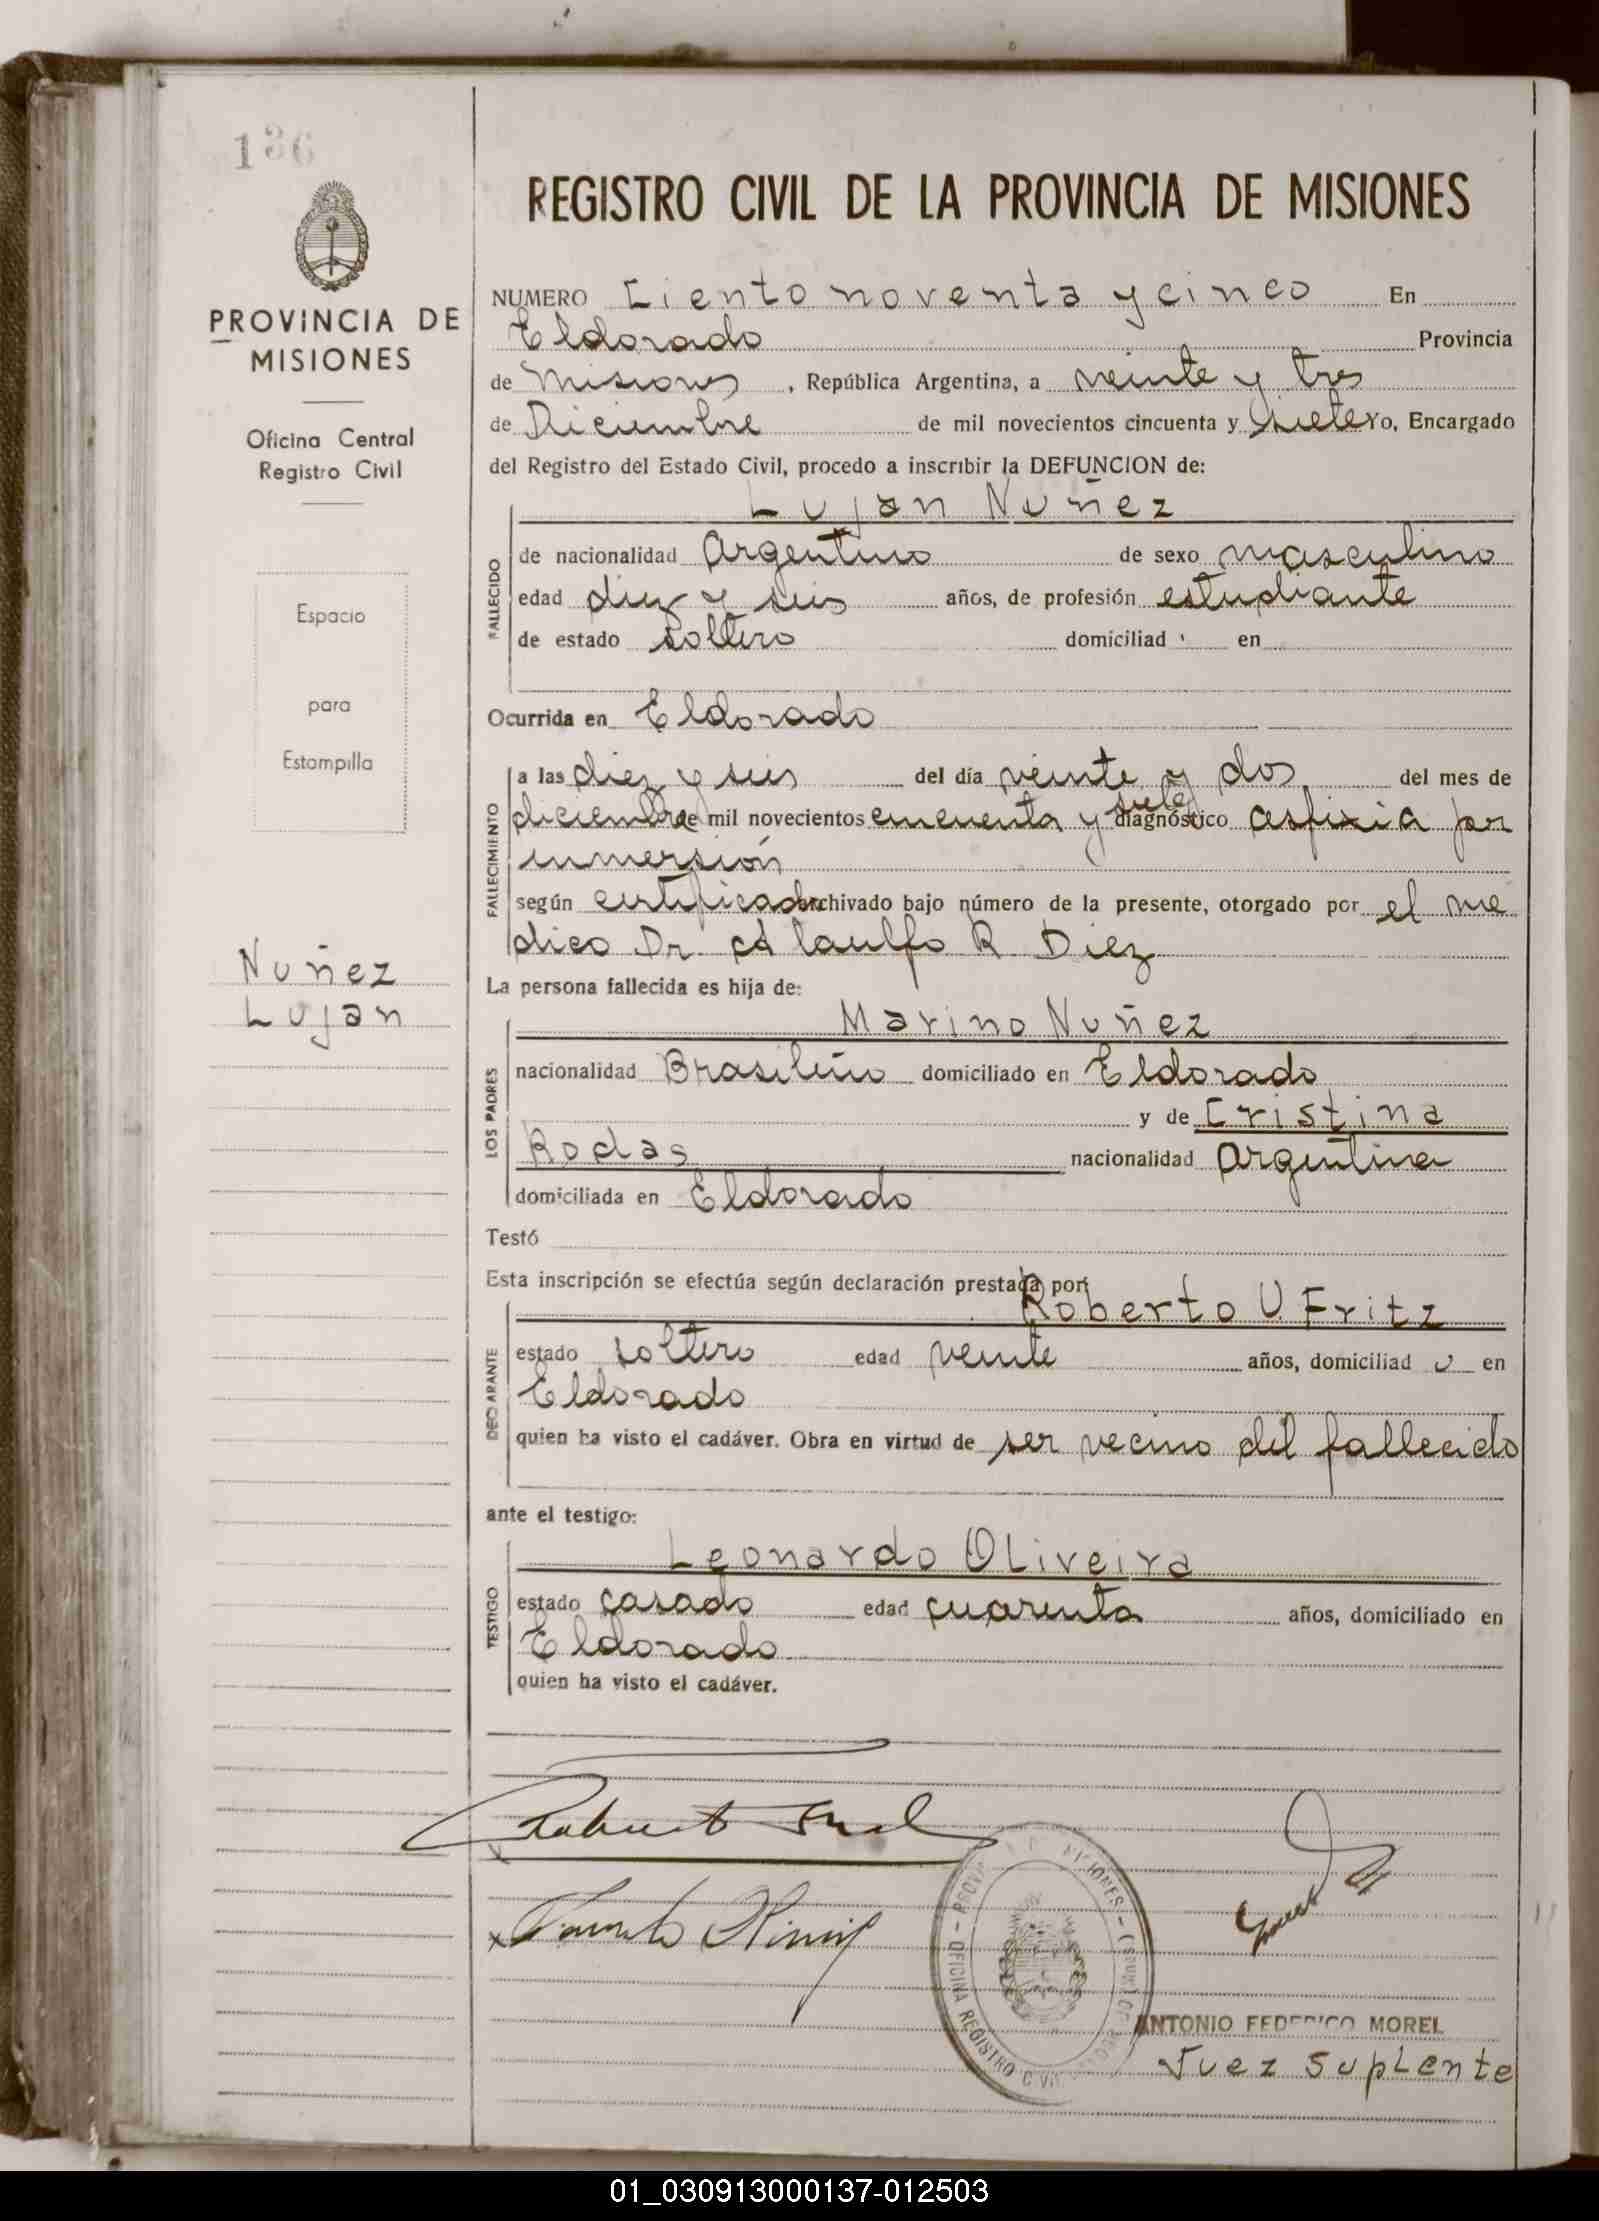 136
PROVINCIA DE
MISIONES
Oficina Central
Registro Civil
Espacio
para
Estampilla
Nuñez
Lujan
REGISTRO CIVIL DE LA PROVINCIA DE MISIONES
NUMERO Ciento noventa y cinco En
Eldorado Provincia
de Misiones, República Argentina, a veinte y tres
de Diciembre de mil novecientos cincuenta y siete Yo, Encargado
del Registro del Estado Civil, procedo a inscribir la DEFUNCION de:
Lujan Nuñez
FALLECIDO
de nacionalidad Argentino de sexo masculino
edad diez y seis años, de profesión estudiante
de estado soltero domiciliad en
Ocurrida en Eldorado
FALLECIMIENTO
a las diez y seis del día veinte y dos del mes de
diciembre de mil novecientos cincuenta y siete diagnóstico asfixia por
inmersión
según certificado archivado bajo número de la presente, otorgado por el me
dico Dr. Adlaulfo R Diez
La persona fallecida es hija de:
LOS PADRES
Marino Nuñez
nacionalidad Brasileño domiciliado en Eldorado
y de Cristina
Rodas nacionalidad Argentina
domiciliada en Eldorado
Testó
Esta inscripción se efectúa según declaración prestada por:
Roberto U. Fritz
DECLARANTE
estado soltero edad veinte años, domiciliad o en
Eldorado
quien ha visto el cadáver. Obra en virtud de ser vecino del fallecido
ante el testigo:
Leonardo Oliveira
TESTIGO
estado casado edad cuarenta años, domiciliado en
Eldorado
quien ha visto el cadáver.
OFICINA REGISTRO CIVIL
MISIONES
ANTONIO FEDERICO MOREL
Juez Suplente
01_030913000137-012503